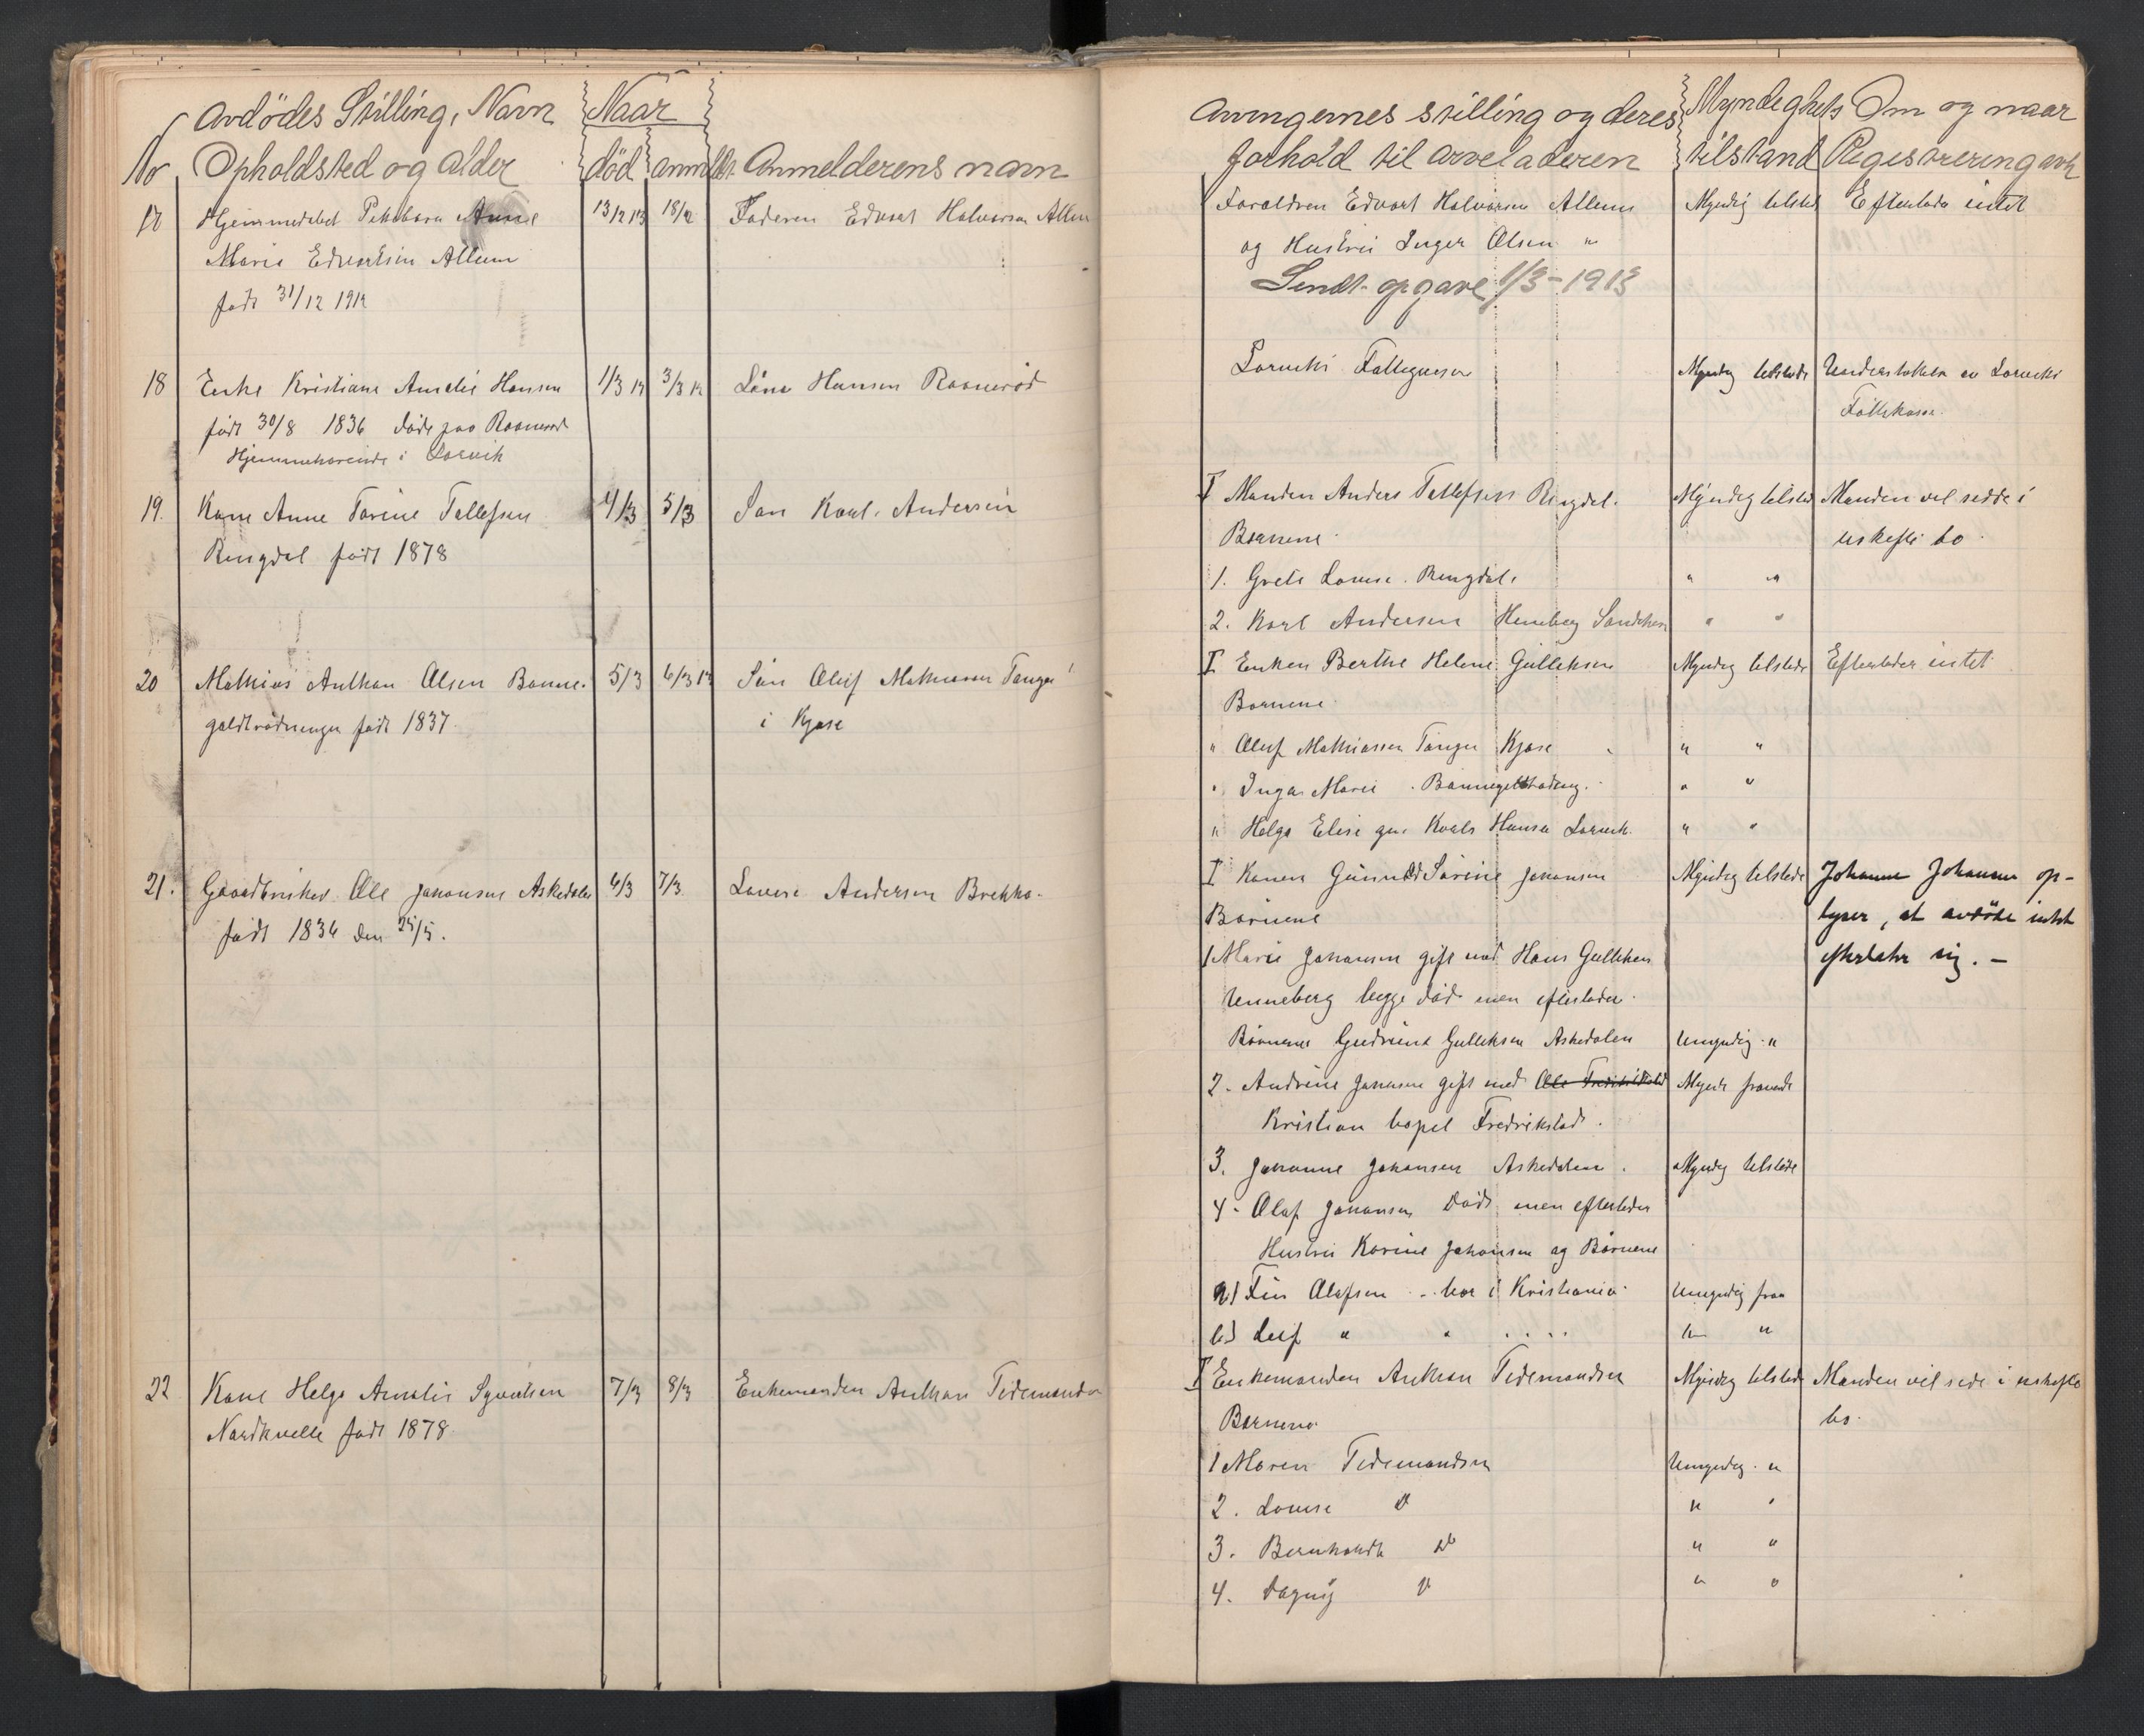 No Avdödes Stilling, Navn
Opholdsted og alder
Naar
död anmeldt
Anmelderens navn
17 Hjemmedøbt Pikebarn Anne 13/2 13 18/2 Faderen Edvart Halvorsen Allum
Marie Edvartsen Allum
født 31/12 1912
18 Enke Kristiane Amalie Hansen 1/3 13 3/3 13 Hansen Roonerød
født 30/8 1836 døde paa
Hjemmehørende i Larvik
19. Kone Anne Torine Tollefsen 4/3 5/3 Søn Karl Andersen
Ringdal født 1878
20 Mathias Anthon Olsen Bonne- 5/3 6/3 13 Søn Oluf Mathiassen Tanger
født 1837 i Kjose
21. Gaardbruker Ole Johansen Askedalen 6/3 7/3 Lovise Andersen Brekke
født 1836 den 25/5.
22 Kone Helga Amalie Syvertsen 7/3 8/3 Enkemanden Anthon Tidemandsen
født 1878
Arvingernes stilling og deres
forhold til arveladeren
Myndeghets
tilstand
Om og naar
Registrering
Forældren Edvart Halvorsen Allum Myndig tilstede Efterlader intet
og Hustru Inger Olsen "
Sendt opgave 1/3 - 1913
Larviks Myndig tilstede Understøttelse av Larviks
I Manden Anders Tollefsen Ringdal. Myndig tilstede Manden vil sidde i
Børnene uskifte bo
1. Grete Lovise Ringdal " "
2. Karl Andersen " "
I Enken Berthe Helene Gulliksen Myndig tilstede Efterlader intet
Børnene
" Oluf Mathiassen Tanger Kjose " "
" Inga Marie " "
" Helga Elise Hansen Larvik " "
I Konen Sørine Johansen Myndig tilstede Johanne Johansen op-
Børnene lyser, at avdöde intet
1 Marie Johansen gift med Hans Gulliksen efterlater sig. -
Unneberg begge død men efterlader
Børnene Gudrune Gulliksen Askedalen Umyndig "
2. Andrine Johansen gift med Ole Myndig
Kristian Fredrikstad.
3. Johanne Johansen Askedalen. Myndig tilstede
4. Olaf Johansen død men efterlader
Hustru Karine Johansen og Børnene
a) Fin Olafsen bor i Kristiania Umyndig fra
b) Leif " " " "
I Enkemanden Anthon Tidemandsen Myndig tilstede Manden vil sidde i uskifte
Børnene bo.
1 Maren Tidemandsen Umyndig "
2. Lovise " "
3. Bernhardt " "
4. Dagny " "